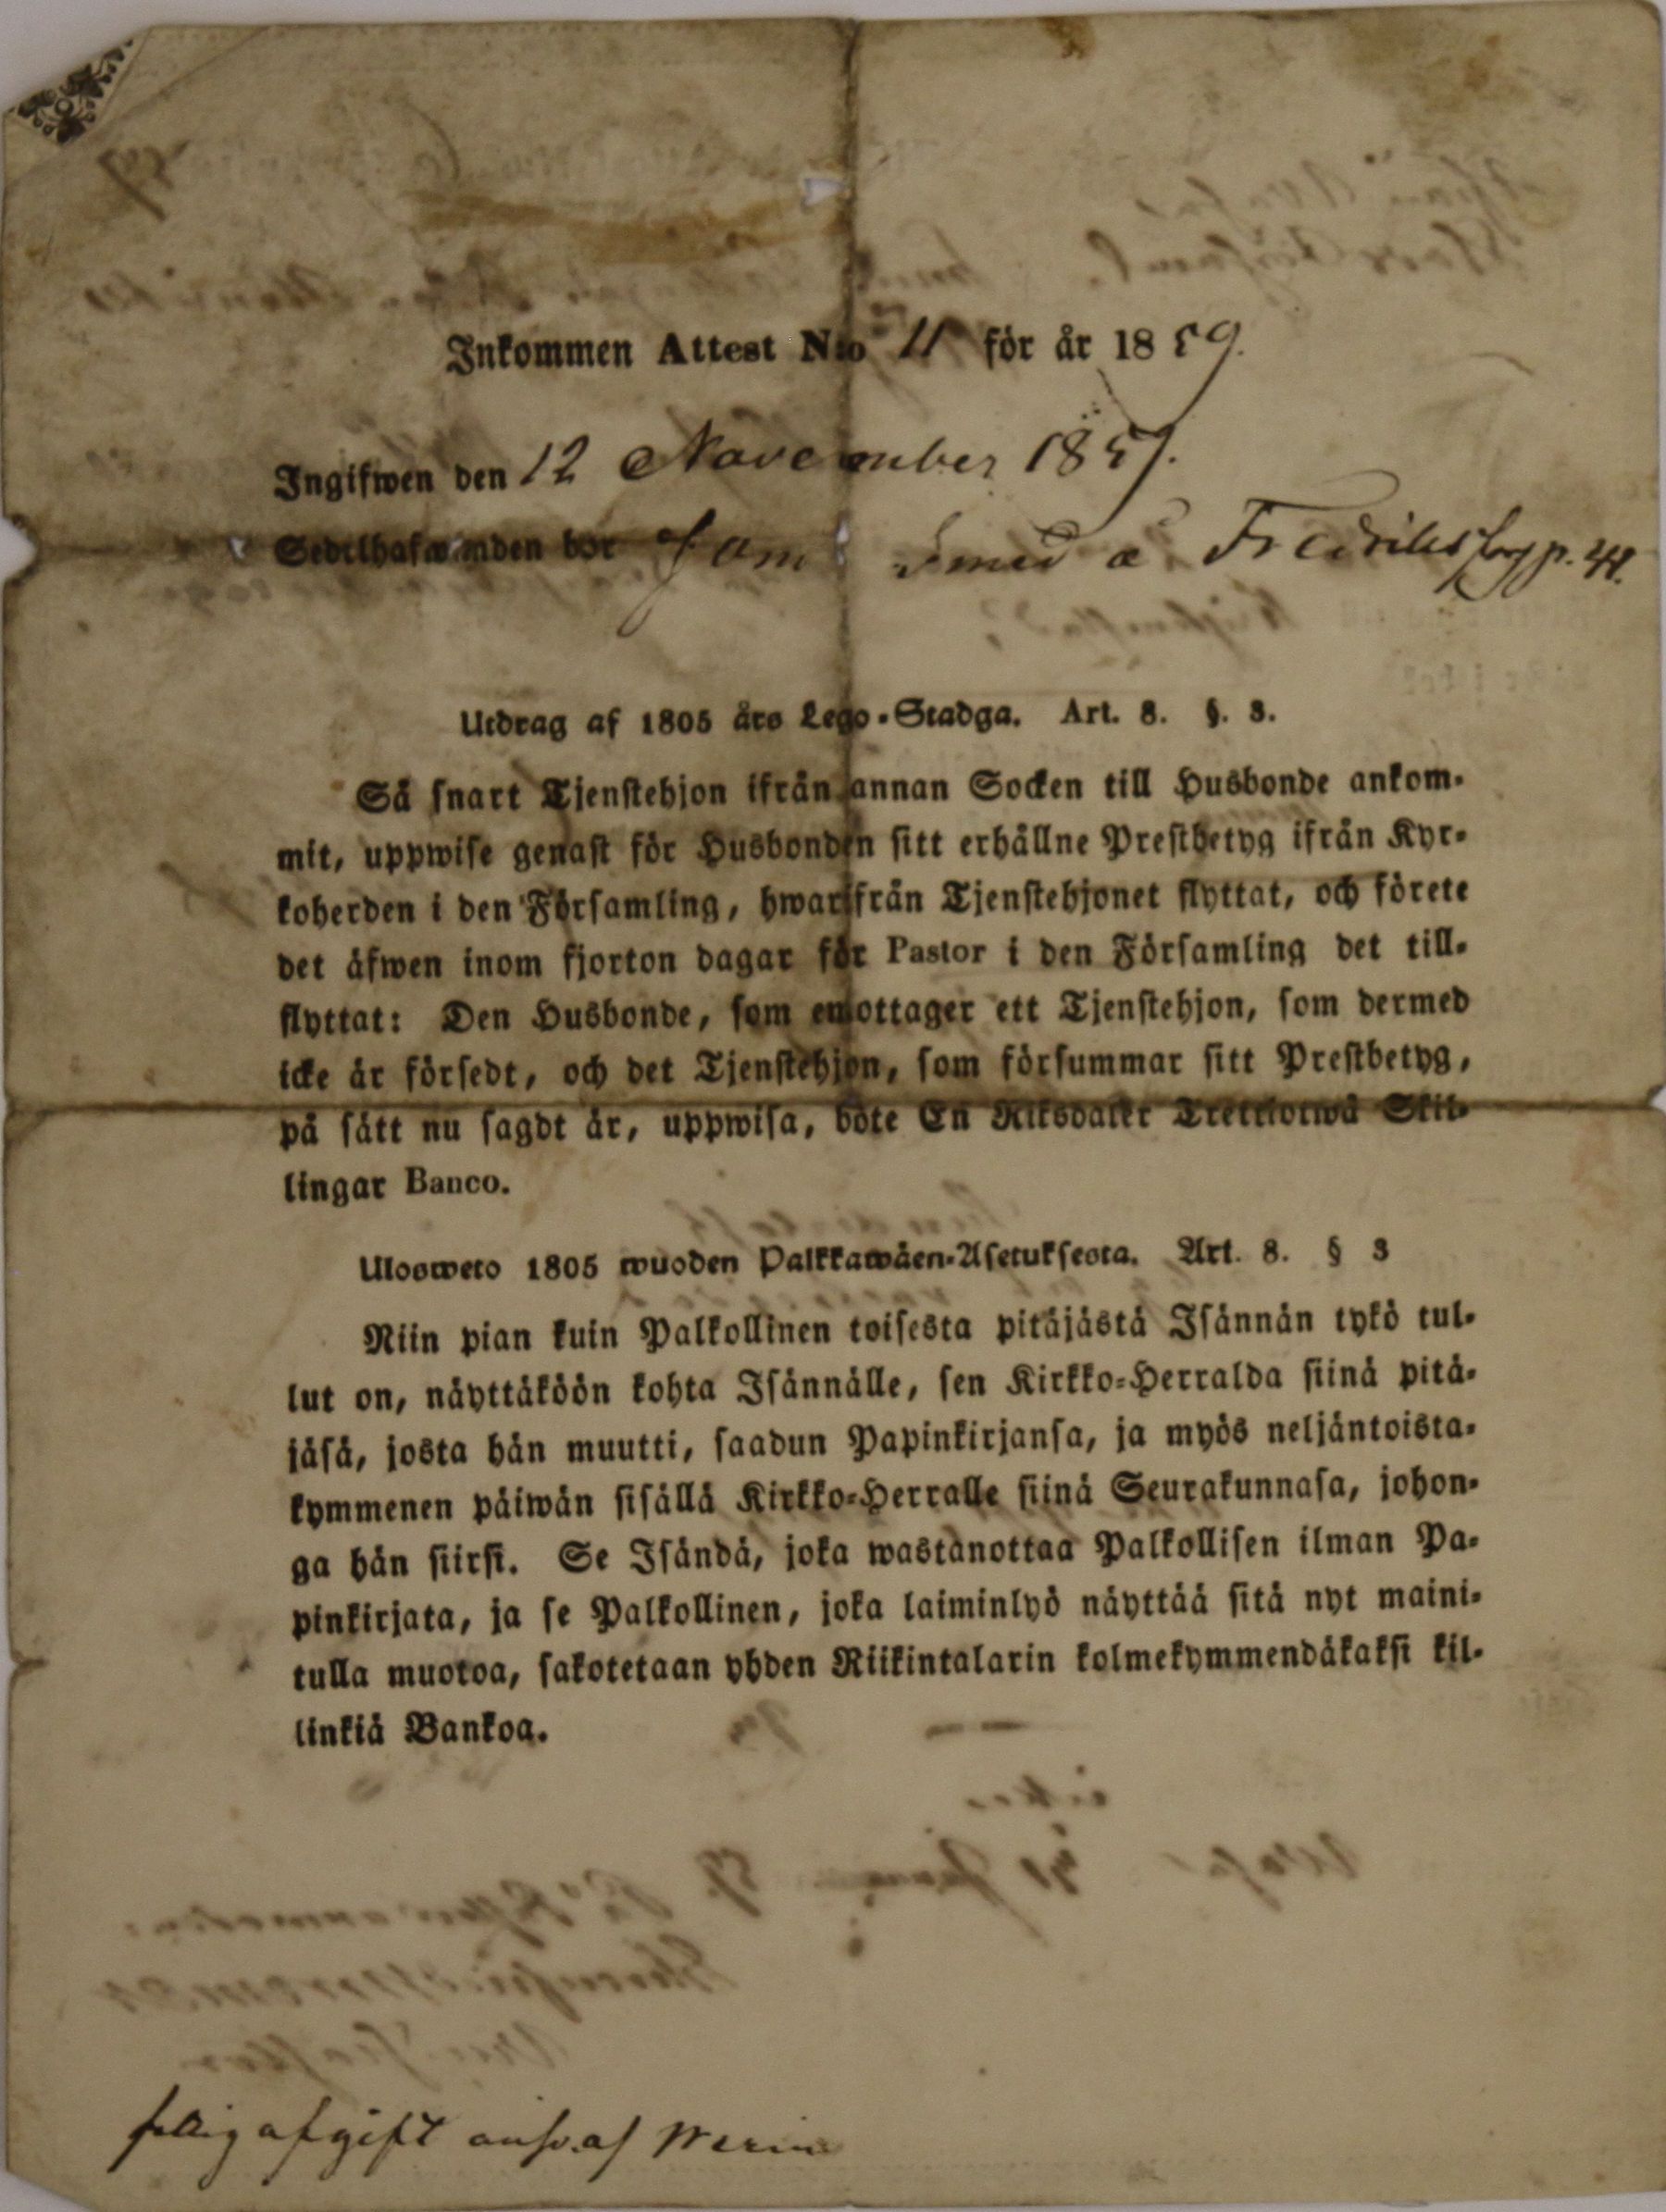 Inkommen Attest N:o 11 för år 1859.
Ingifwen den 12 November 1859.
Sedelhafwanden bor som smed a Fredriksfors p. 41.
Utdrag af 1805 års Lego-Stadga. Art. 8. §. 3.
Så snart Tjenstehjon ifrån annan Socken till Husbonde ankom-
mit, uppwise genast för Husbonden sitt erhållne Prestbetyg ifrån Kyr-
koherden i den Församling, hwarifrån Tjenstehjonet flyttat, och förete
det äfwen inom fjorton dagar för Pastor i den Församling det till-
flyttat: Den Husbonde, som emottager ett Tjenstehjon, som dermed
icke är försedt, och det Tjenstehjon, som försummar sitt Prestbetyg,
på sätt nu sagdt är, uppwisa, böte En Riksdaler Trettiotwå Skil-
lingar Banco.
Ulosweto 1805 wuoden Palkkawäen-Asetuksesta. Art. 8. § 3
Niin pian kuin Palkollinen toisesta pitäjästä Isännän tykö tul-
lut on, näyttäköön kohta Isännälle, sen Kirkko-Herralda siinä pitä-
jäsä, josta hän muutti, saadun Papinkirjansa, ja myös neljäntoista-
kymmenen päiwän sisällä Kirkko-Herralle siinä Seurakunnasa, johon-
ga hän siirsi. Se Isändä, joka wastanottaa Palkollisen ilman Pa-
pinkirjata, ja se Palkollinen, joka laiminlyö näyttää sitä nyt maini-
tulla muotoa, sakotetaan yhden Riikintalarin kolmekymmendäkaksi kil-
linkiä Bankoa.
afgift af